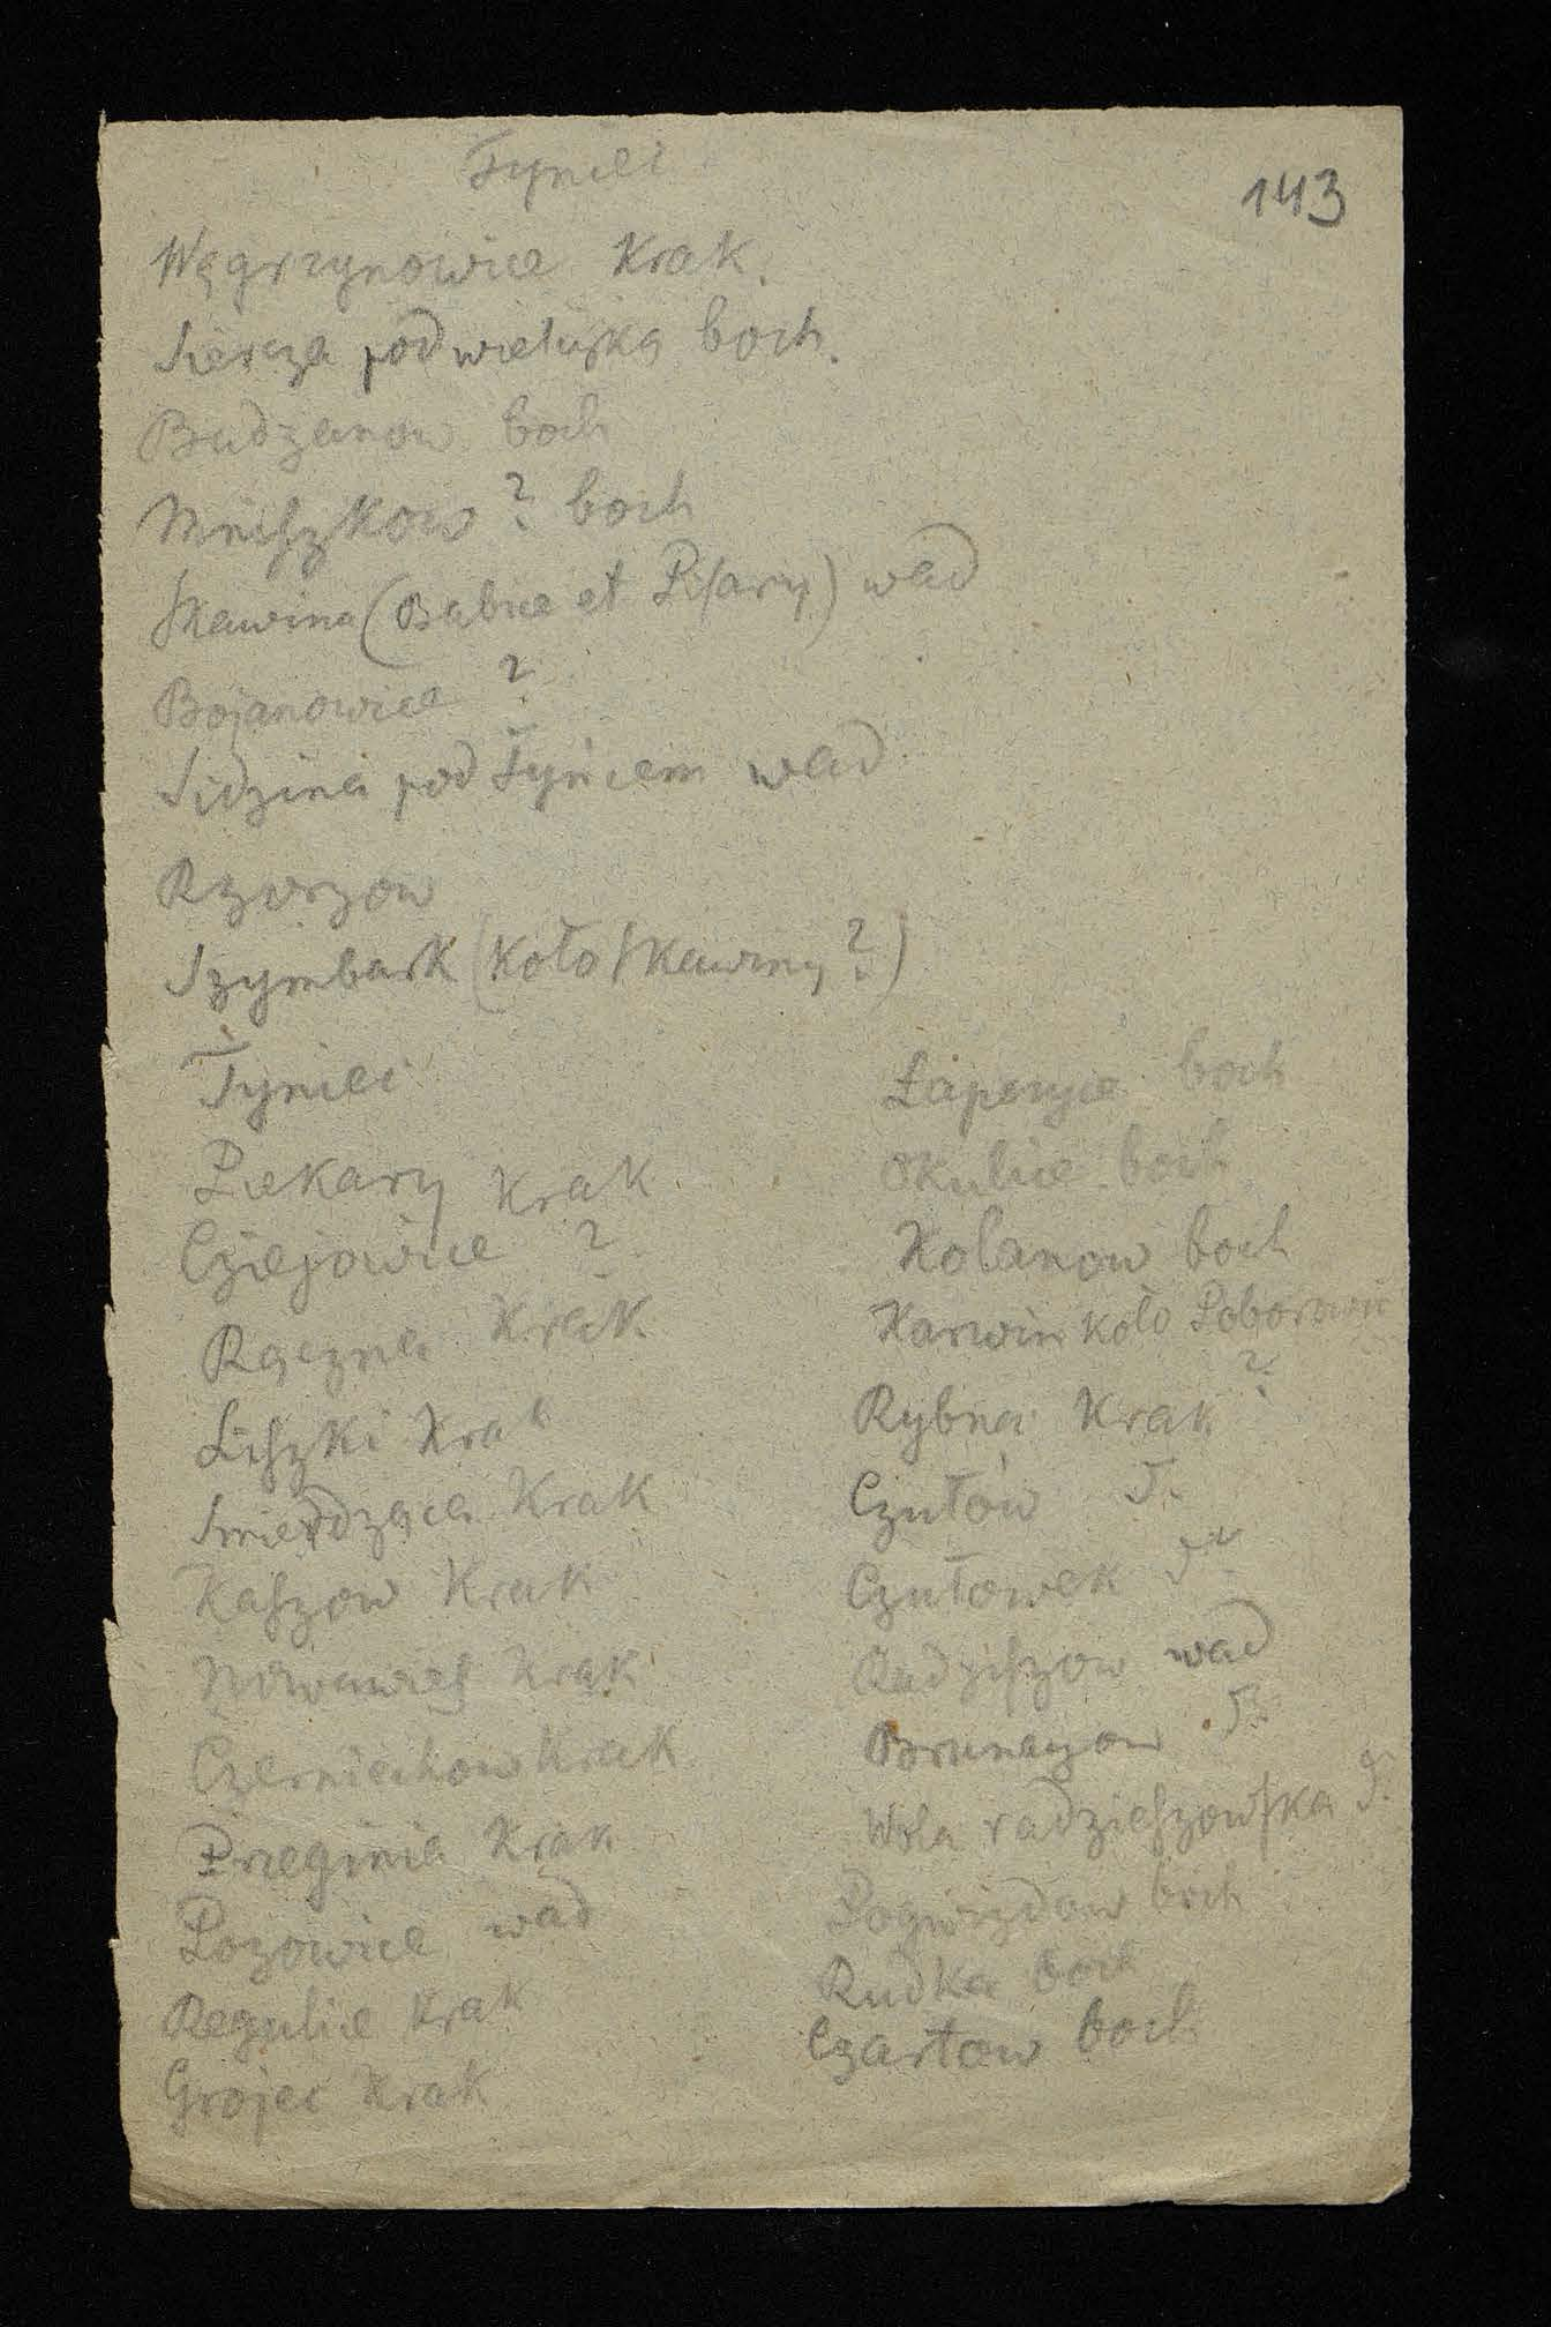 Tyniec
143
Węgrzynowice Krak.
Siercza pod wieliczką boch.
Budzanow boch
Mniszkow ? boch
Skawina (Babice et Pisary) wad
Bojanowice ?
Sidzina pod Tyńcem wad
Rzozow
Szymbark (koło Skawiny ?)
Tyniec
Piekary Krak
Cziejowice ?
Rączna Krak.
Liszki Krak
Smierdząca Krak
Kaszow Krak
Nowawies Krak
Czerniechow Krak
Przeginia Krak
Pozowice wad
Regulice Krak
Grojec Krak
Łapczyce boch
Okulice boch
Kolanow boch
Karwin koło Poborowic
?
Rybna Krak
Czułów T.
Czułowek T.
Radziszow wad
Brunaczow T.
Wola radzieszowska T.
Pogwizdow boch
Rudka boch
Czartow boch